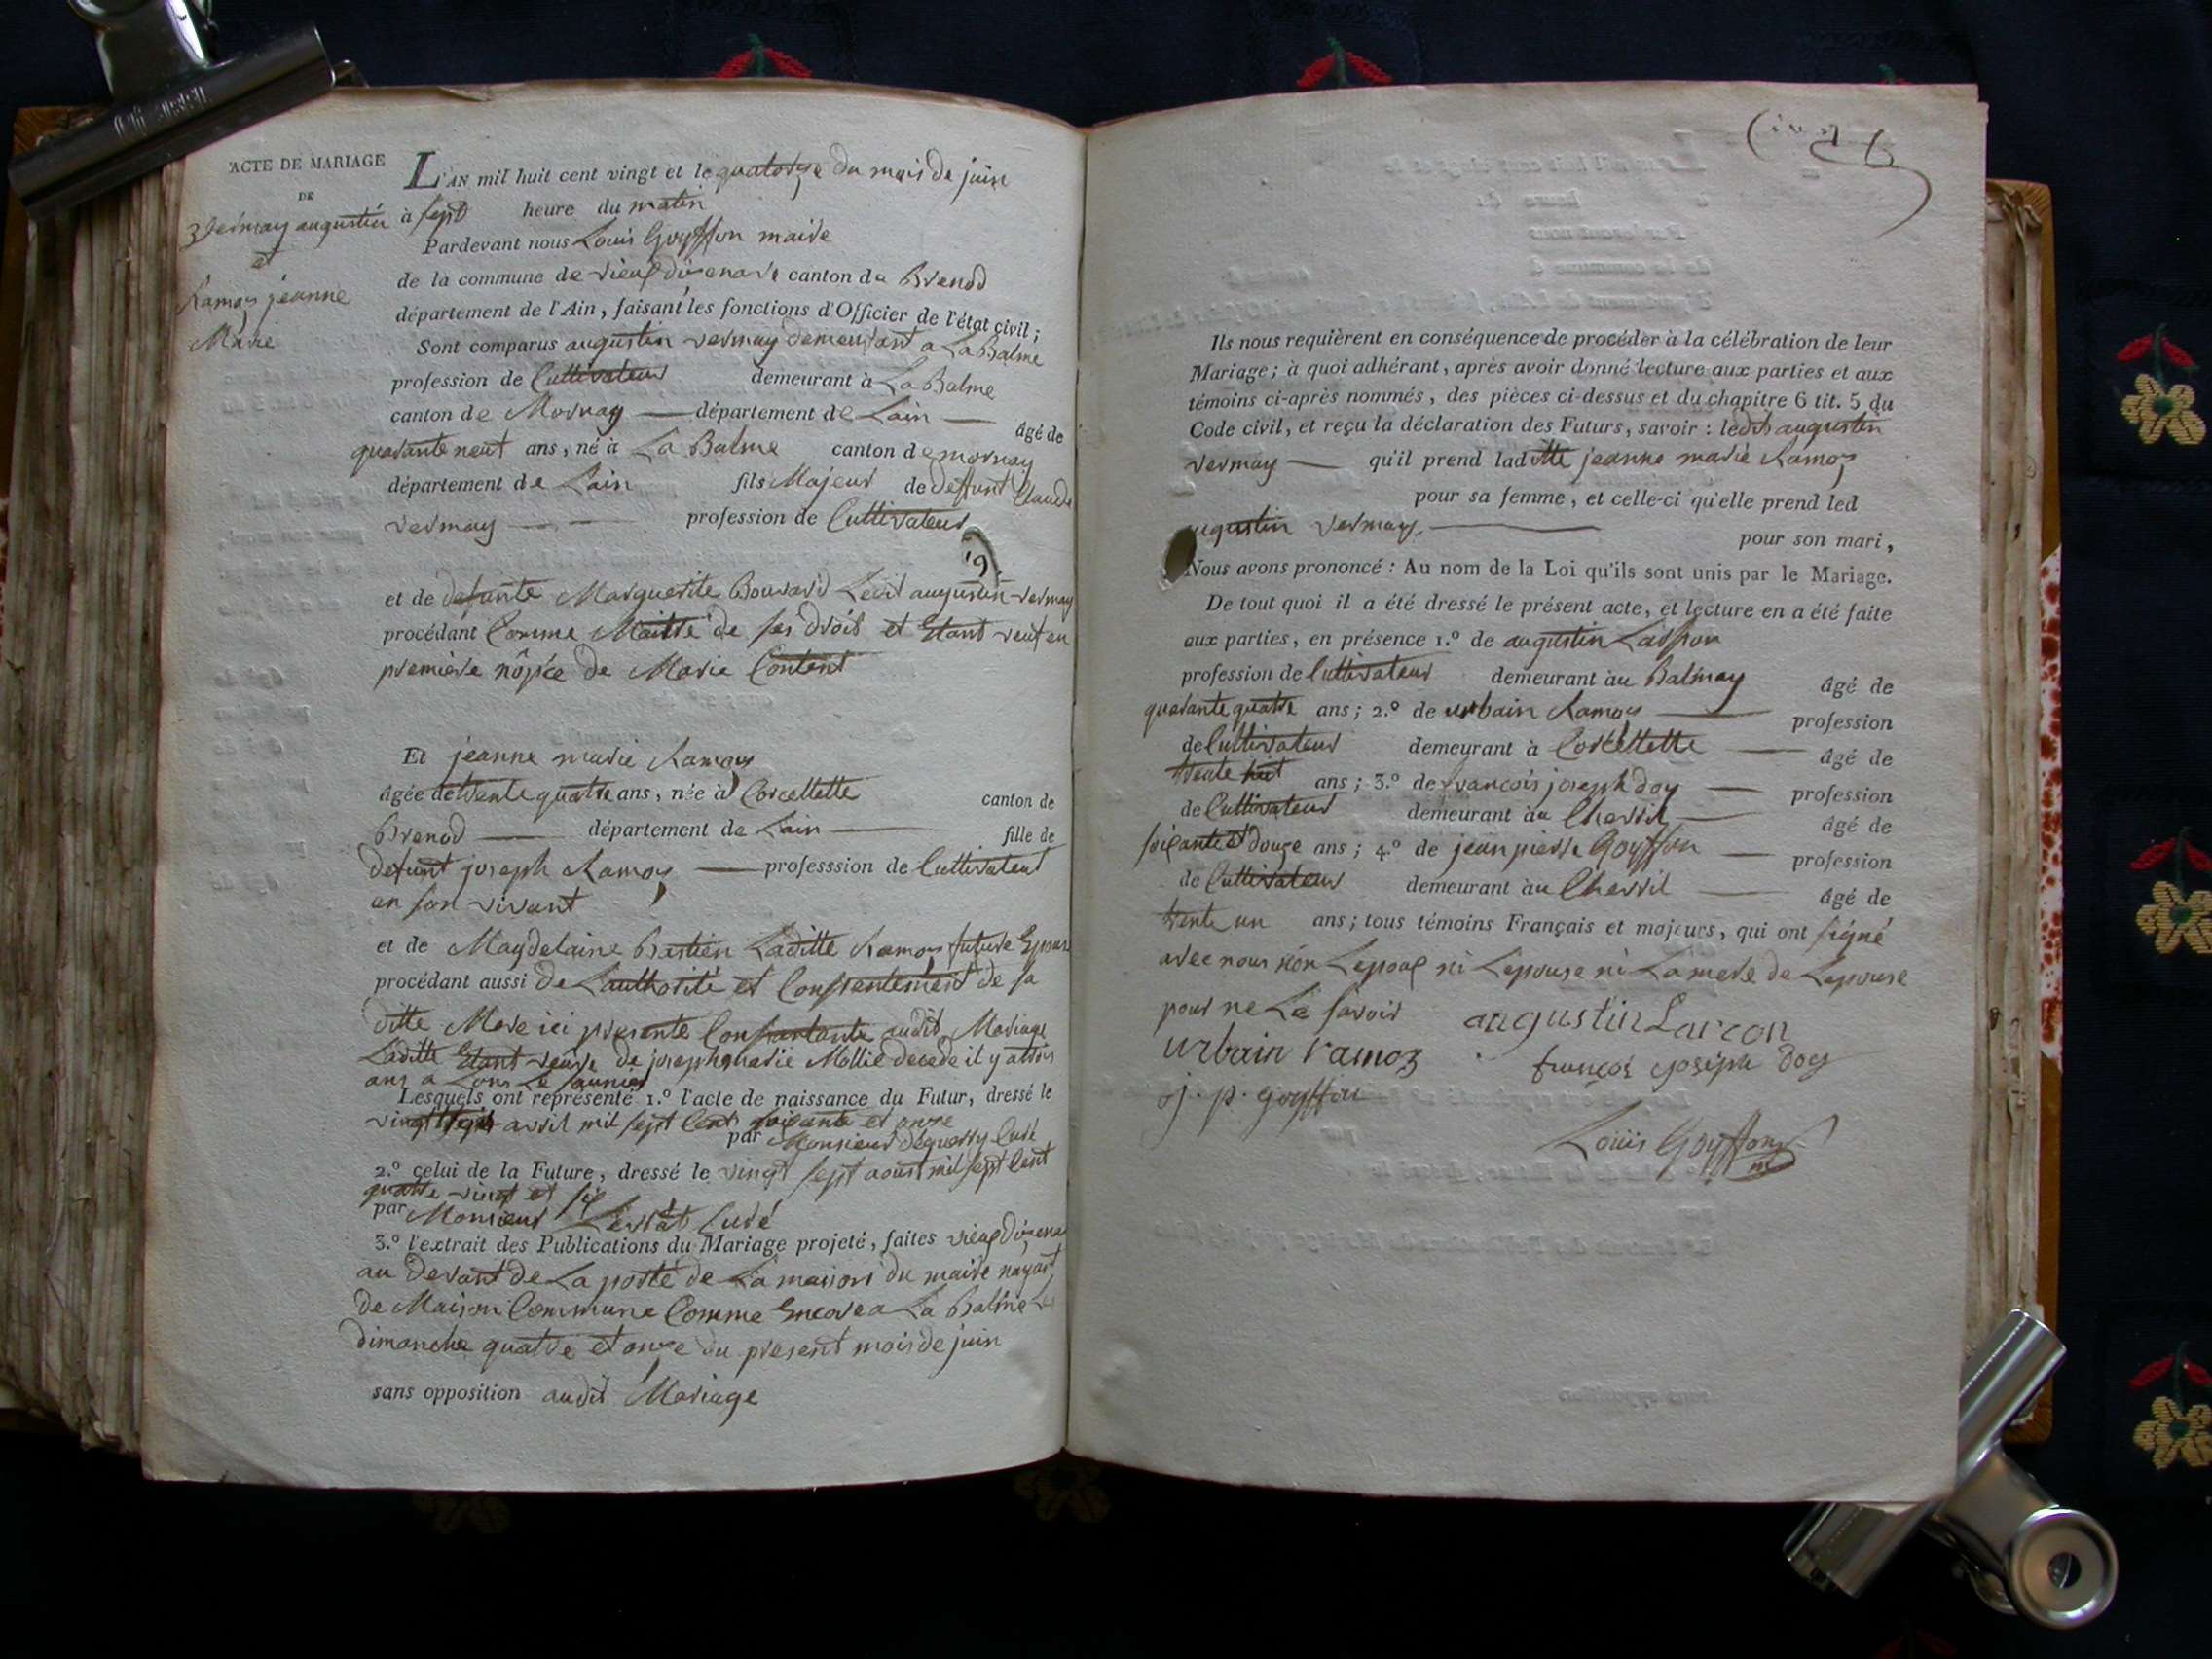 ACTE DE MARIAGE
DE
3 Vermay augustin
et
Ramoz jeanne
Marie
L'AN mil huit cent vingt et le quatorze du mois de juin
à sept heure du matin
Pardevant nous Louis Goyffon maire
de la commune de vieux dizenave canton de Brenod
département de l'Ain, faisant les fonctions d'Officier de l'état civil ;
Sont comparus augustin vermay demeurant a La Balme
profession de Cultivateur demeurant à La Balme
canton de Mornay département de Lain âgé de
quarante neuf ans, né à La Balme canton de mornay
département de Lain fils Majeur de deffunt Claude
vermay profession de Cultivateur
et de defunte Marguerite Bouvard Ledit augustin vermay
procédant Comme Maitre de ses droit et Etant veuf en
premiere nôpce de Marie Content
Et jeanne marie Ramoz
âgée de trente quatre ans, née à Corcellette canton de
Brenod département de Lain fille de
defunt joseph Ramoz professsion de Cultivateur
en son vivant
et de Magdelaine Bastien Laditte Ramoz future Epouse
procédant aussi de Lauthorité et Consentement de sa
ditte Mere ici presente Consentante audit Mariage
Laditte Etant veuve de joseph marie Mollie decede il y a trois
ans a Lons Le Saunier
Lesquels ont représenté 1.º l'acte de naissance du Futur, dressé le
vingt avril mil sept Cent soixante et onze
par Monsieur Curé
2.º celui de la Future, dressé le vingt sept aoust mil sept Cent
quatre vingt et six
par Monsieur Curé
3.º l'extrait des Publications du Mariage projeté, faites vieux dizena
au devant de La porte de La maison du maire nayant
de Maison Commune Comme Encore a La Balme Le
dimanche quatre et onze du present mois de juin
sans opposition audit Mariage
Ils nous requièrent en conséquence de procéder à la célébration de leur
Mariage ; à quoi adhérant, après avoir donné lecture aux parties et aux
témoins ci-après nommés, des pièces ci-dessus et du chapitre 6 tit. 5 du
Code civil, et reçu la déclaration des Futurs, savoir : ledit augustin
vermay qu'il prend laditte jeanne marie Ramoz
pour sa femme, et celle-ci qu'elle prend led
augustin vermay pour son mari,
Nous avons prononcé : Au nom de la Loi qu'ils sont unis par le Mariage.
De tout quoi il a été dressé le présent acte, et lecture en a été faite
aux parties, en présence 1.º de augustin Larson
profession de Cultivateur demeurant àu Balmay âgé de
quarante quatre ans ; 2.º de urbain Ramoz profession
de Cultivateur demeurant à Corcellette âgé de
trente huit ans ; 3.º de francois joseph doy profession
de Cultivateur demeurant àu Chevril âgé de
soixante et douze ans ; 4.º de jean pierre Goyffon profession
de Cultivateur demeurant àu Chevril âgé de
trente un ans ; tous témoins Français et majeurs, qui ont signé
avec nous non Lepoux ni Lepouse ni La mere de Lepouse
pour ne Le savoir augustin Larcon
urbain ramoz françois joseph doy
j. p. goyffon
Louis Goyffon